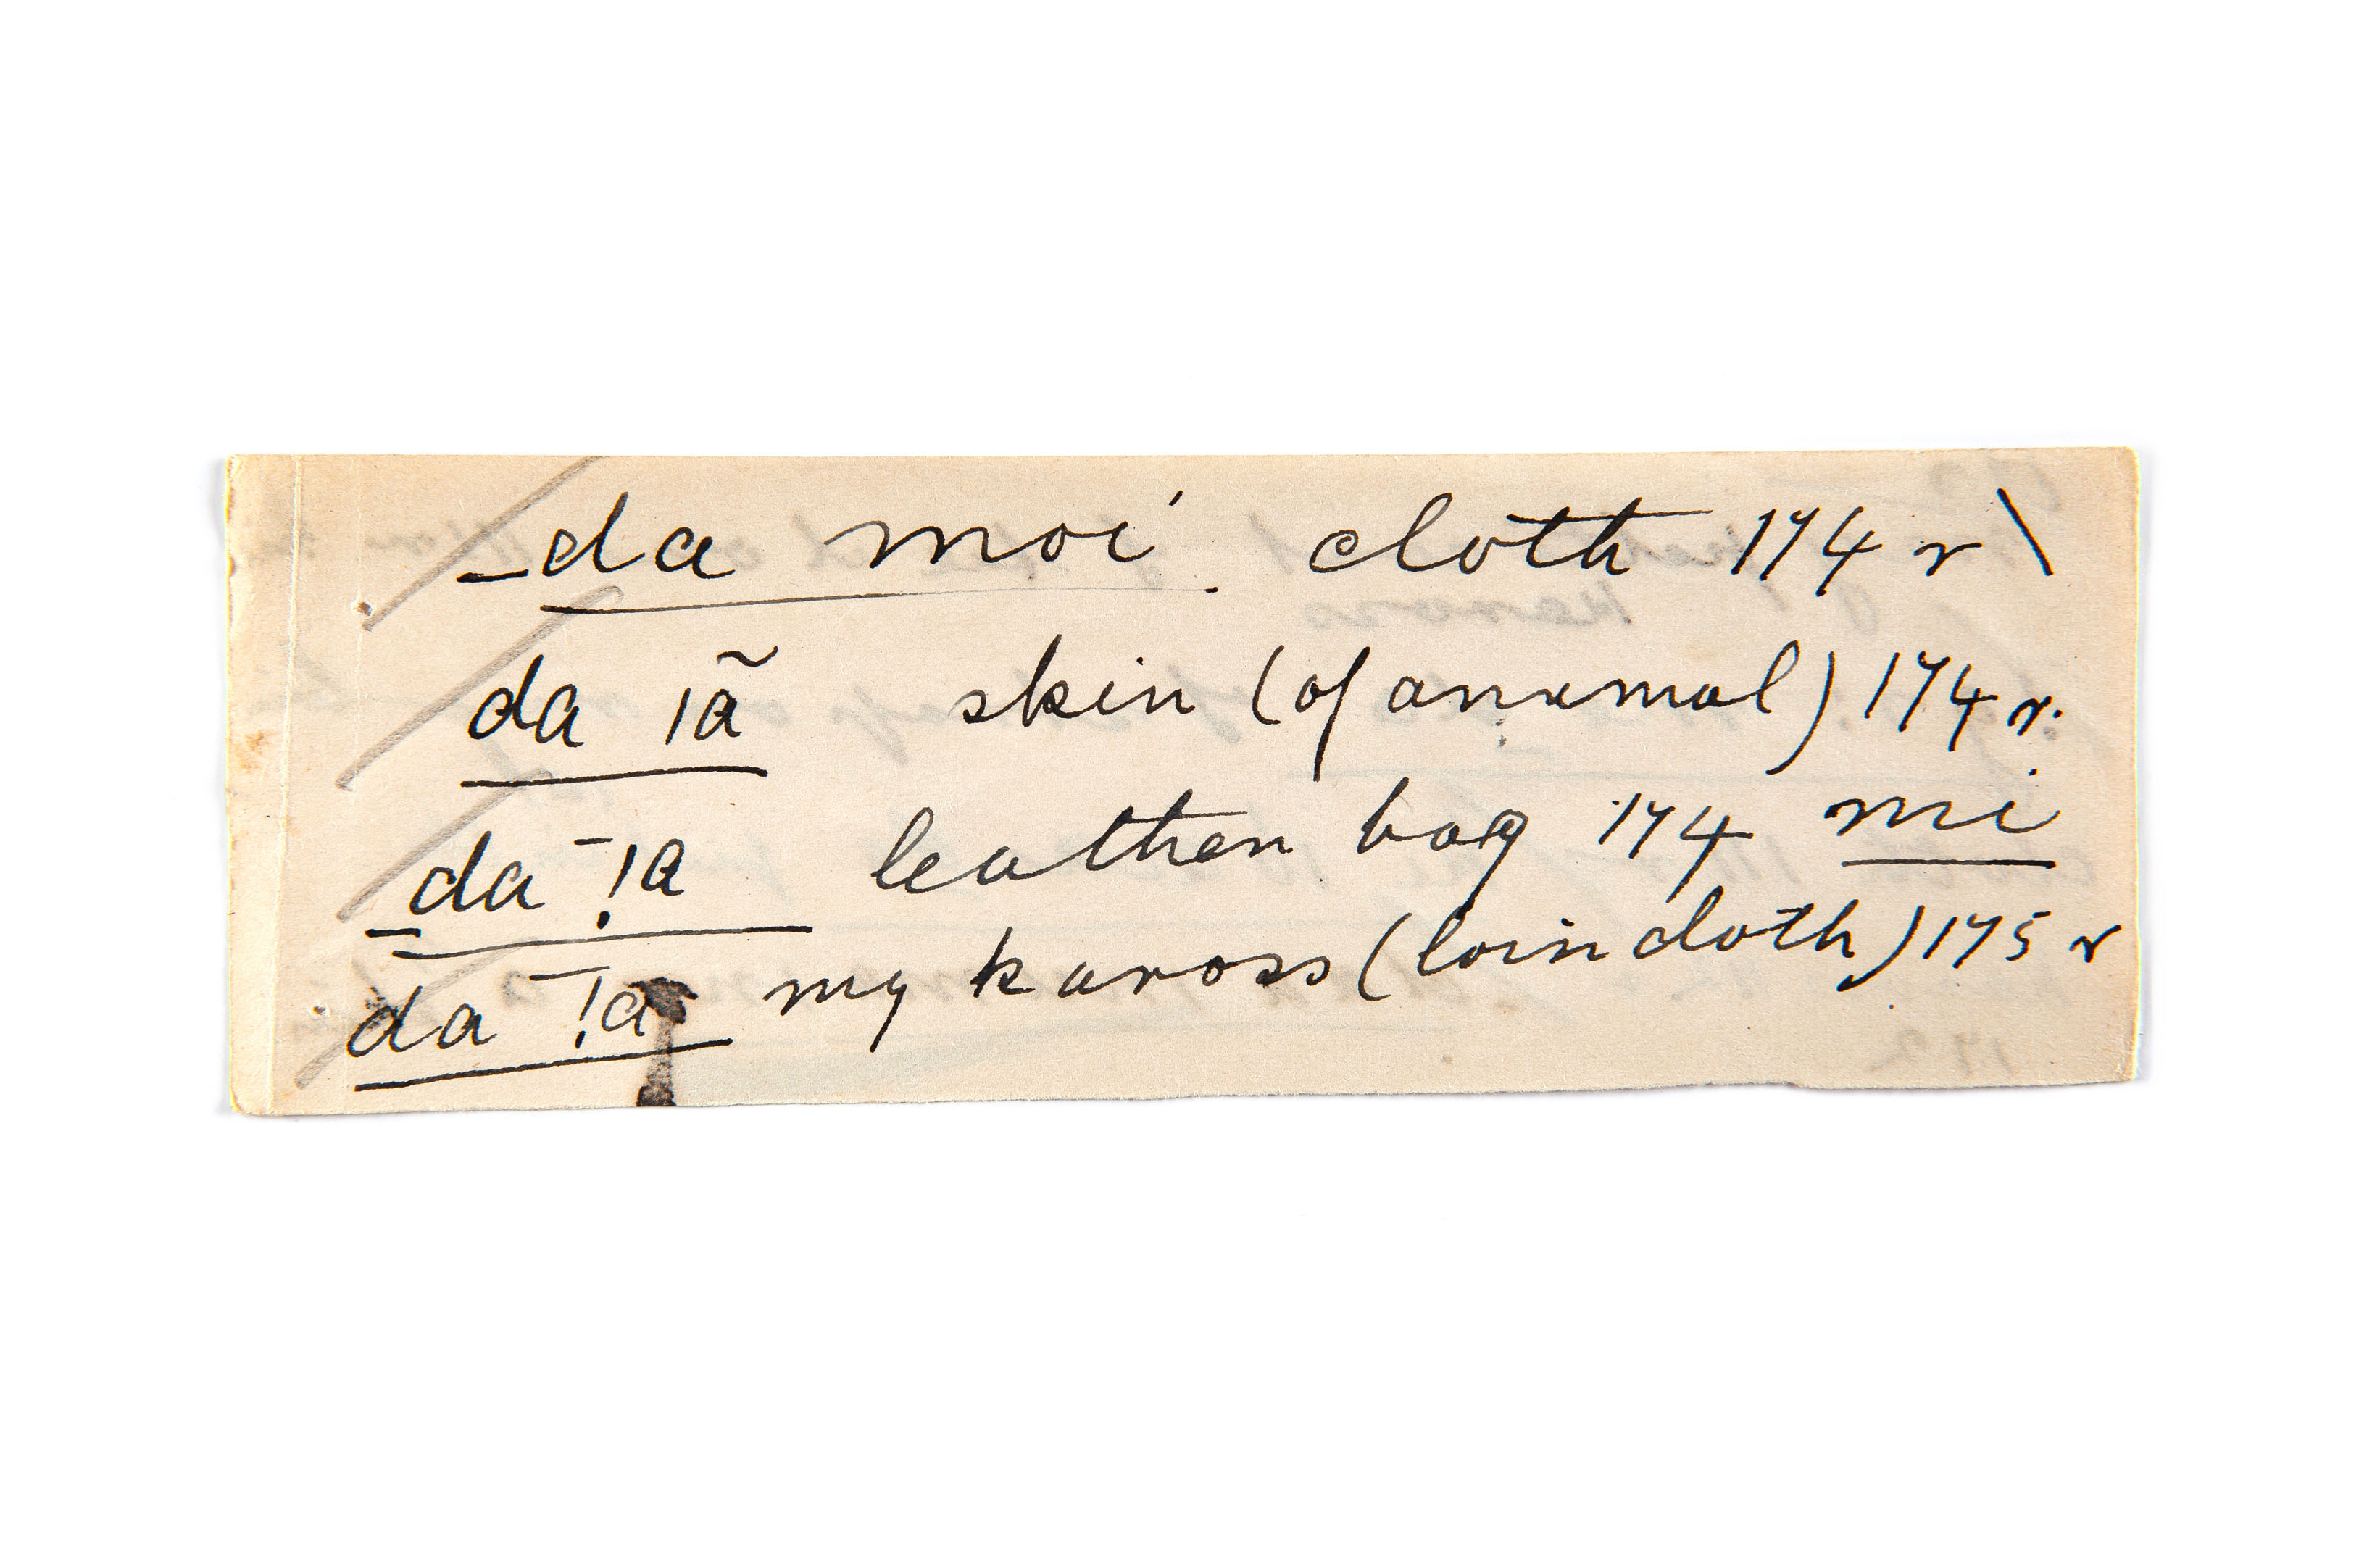 _da moi cloth 174 r \
da ıã skin (of animal) 174 r.
_da ¯!a leather bag 174 mi
da ¯!a my kaross (loin cloth) 175 r